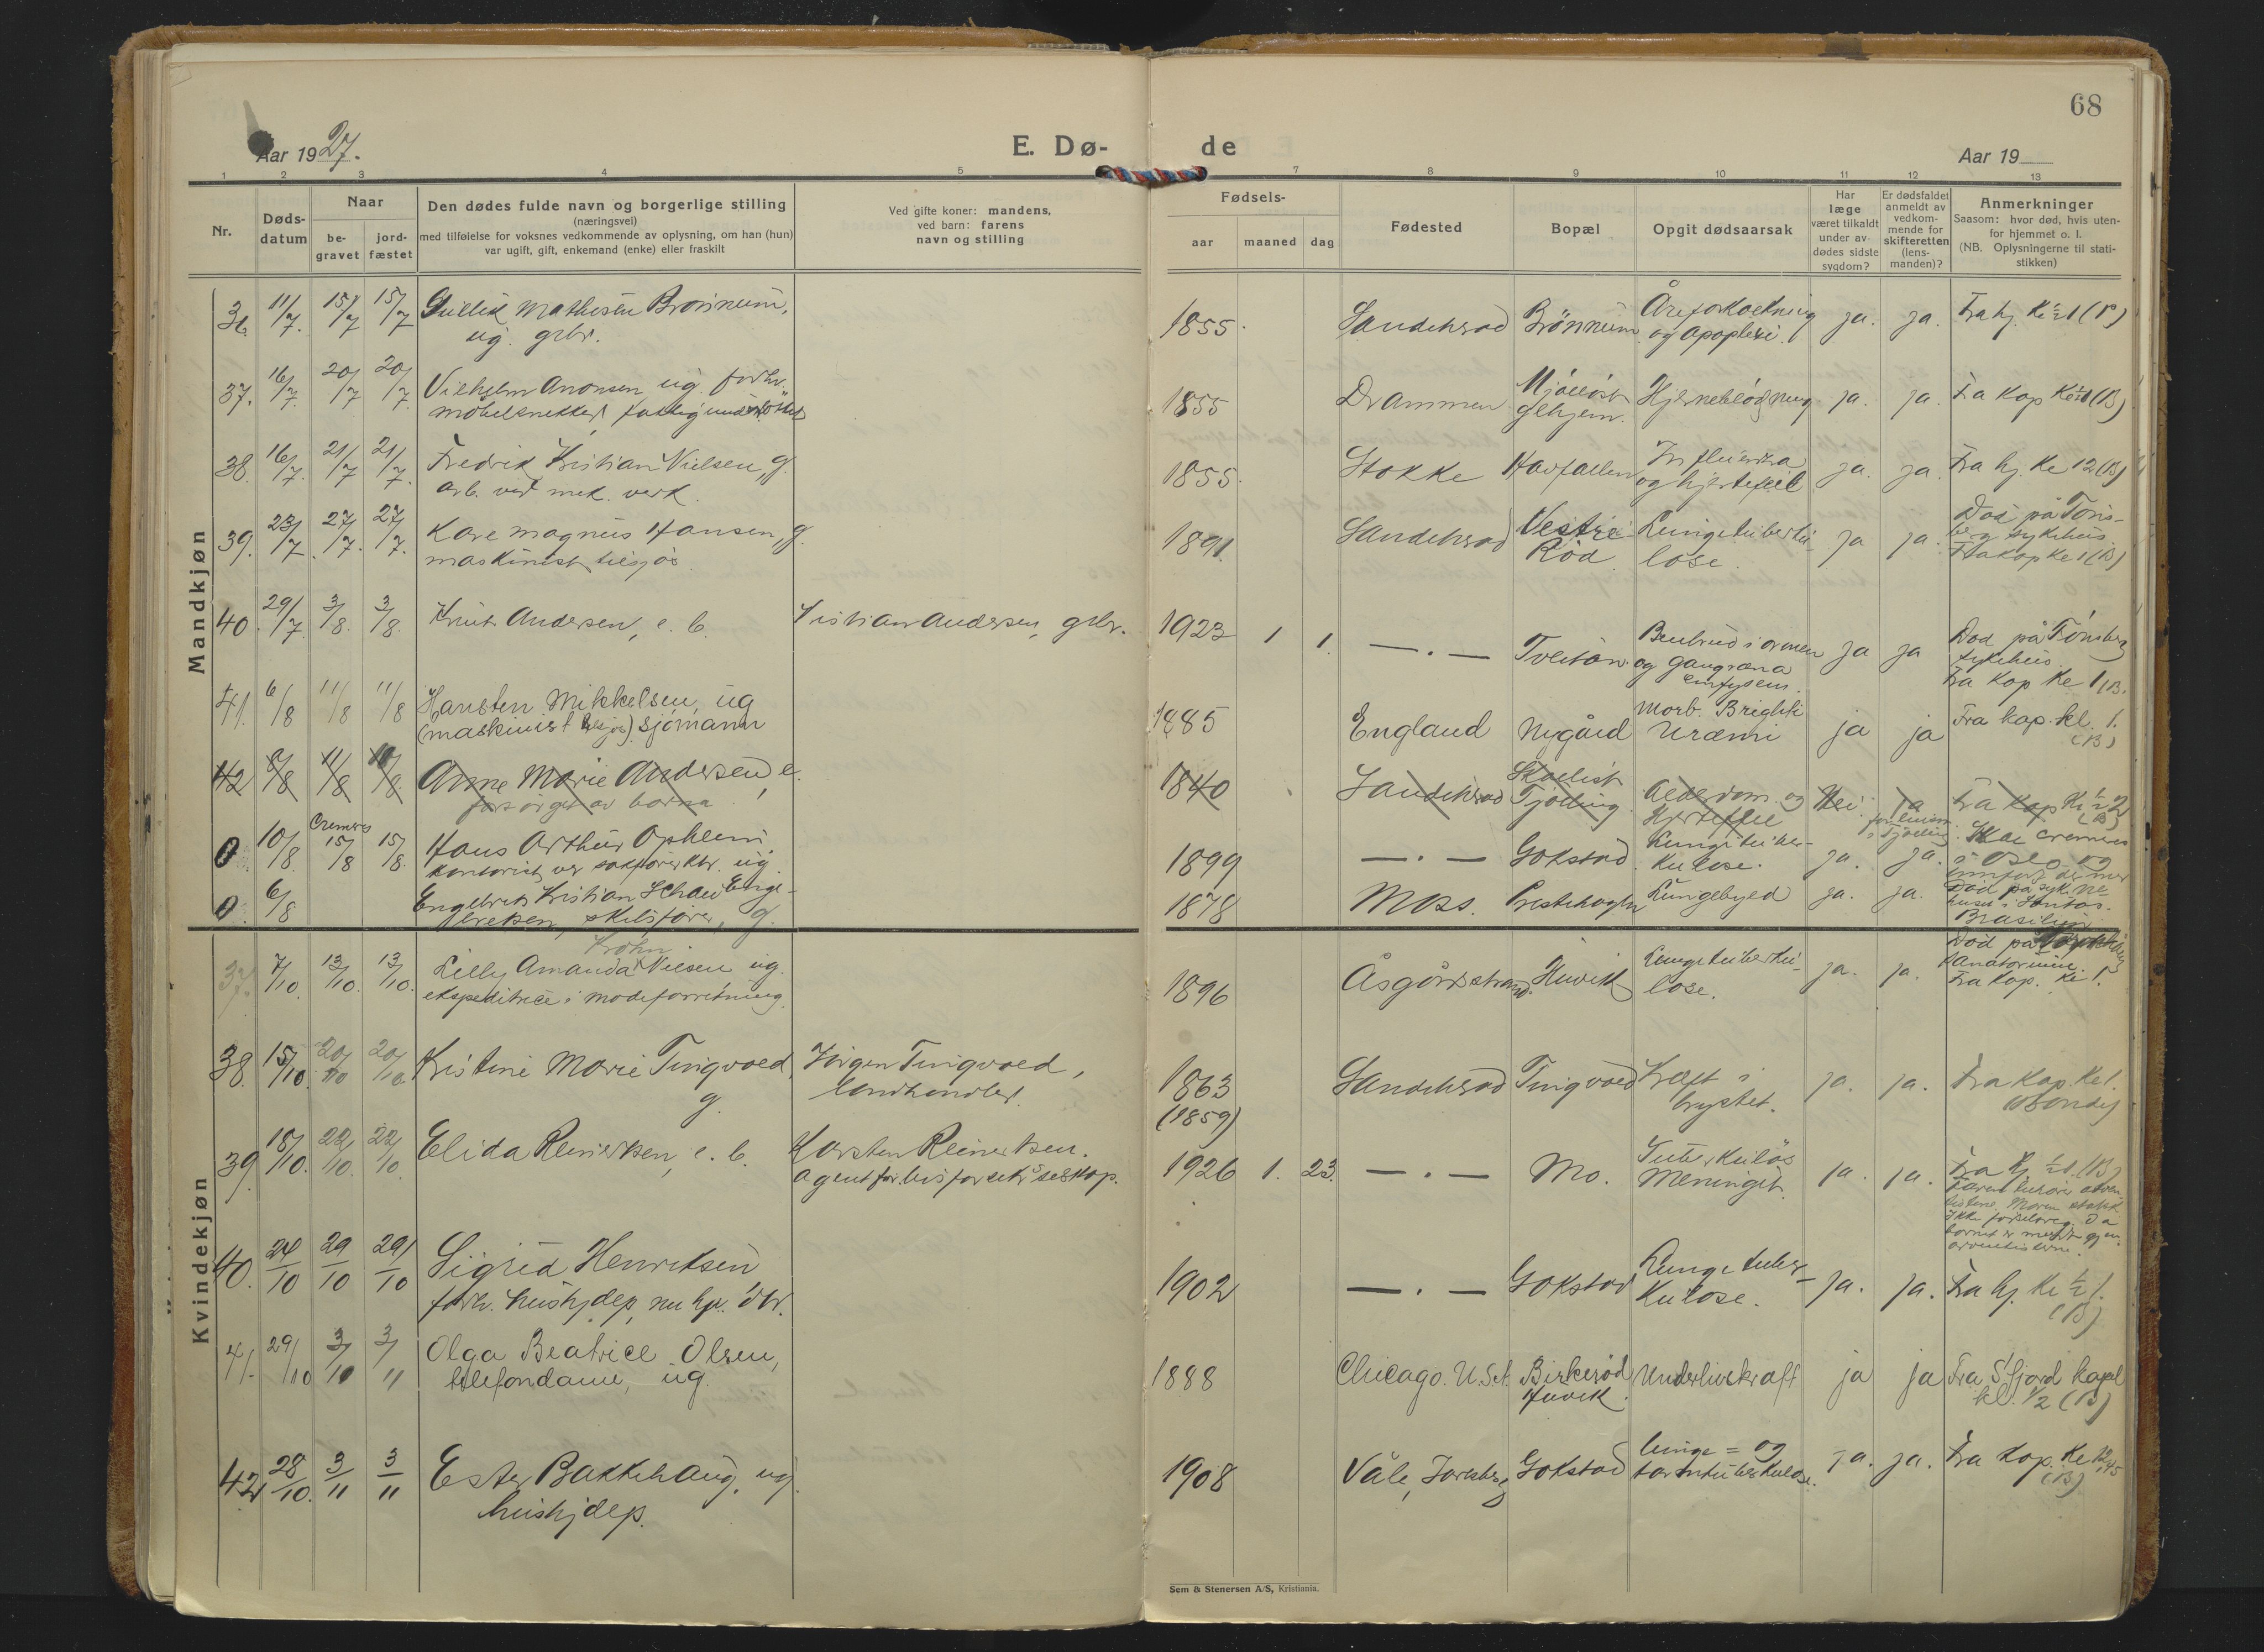 68
Aar 1927.
E. Dø- de
Aar 19
1 2 3 4 5 7 8 9 10 11 12 13
Nr.
Døds-
datum
Naar
be-
gravet
jord-
fæstet
Den dødes fulde navn og borgerlige stilling
(næringsvei)
med tilføielse for voksnes vedkommende av oplysning, om han (hun)
var ugift, gift, enkemand (enke) eller fraskilt
Ved gifte koner: mandens,
ved barn: farens
navn og stilling
Fødsels-
aar maaned dag
Fødested
Bopæl
Opgit dødsaarsak
Har
læge
været tilkaldt
under av-
dødes sidste
sygdom?
Er dødsfaldet
anmeldt av
vedkom-
mende for
skifteretten
(lens-
manden)?
Anmerkninger
Saasom: hvor død, hvis uten-
for hjemmet o. l.
(NB. Oplysningerne til stati-
stikken)
Mandkjøn
36. 11/7. 15/7 15/7 Gullik Mathisen Brønnum, 1855. Sandeherad Brönnum Åreforkalkning ja. ja. Fra hj.
ug. gbr. og apopleksi.
37. 16/7. 20/7 20/7 Vilhelm Aronsen ug. forhv. 1855 Drammen Mjölløst Hjerneblödning ja. ja. Fra kap
möbelsnekker, glhjem.
38. 16/7. 21/7 21/7. Fredrik Kristian Nielsen, g. 1855. Stokke Havfallen Influensa ja. ja. Fra hj. Kl 12 (B)
arb. ved mek. verk. og hjertefeil
39. 23/7. 27/7. 27/7. Kare Magnus Hansen, g. 1891. Sandeherad Vestre Lungetuberku- ja ja. Död på Töns-
maskinist tilsjös Röd. lose. berg sykehus.
Fra kap kl 1 (B)
40. 29/7 3/8. 3/8. Knut Andersen, e. b. Kristian Andersen, gbr. 1923 1 1. — . — Tveitan Benbrud i armen ja ja Död på Tönsberg
og gangræna sykehus.
emfysem. Fra kap kl 1 (B.
41. 6/8 11/8 11/8 Hansten Mikkelsen, ug 1885 England Nygård Morb. Brighti ja ja Fra kap. kl. 1.
(maskinist tilsjøs) sjømann Uræmi (B)
42 8/8 11/8 11/8 Anne Marie Andersen, e. 1840 Sandeherad Tjölling Alderdom og Nei. ja Fra kap Kl 1/2 2
forsörget av barna Hjertefeil (B)
0 10/8. Cremeres 15/8 15/8. Hans Arthur Ophlem, 1899 — . — Gokstad. Lungetuber- ja. ja. Skal cremeres
kontorist ved sakförerktr. ug. kulose. i Oslo og
0 6/8 Engebrets Kristian Schau Enge- 1878 Moss. Prestehagen Lungebyld ja. ja. Död på syke-
bretsen, skibsförer, g. huset i Santos.
Brasilien
Kvindekjøn
37. 7/10. 13/10. 13/10. Lilly Amanda Krohn Nilsen ug. 1896 Åsgårdstrand. Huvik Lungetuberku- ja. ja. Död på
ekspeditrice i modeforretning. lose. sanatorium.
Fra kap. kl 1.
38. 15/10. 20/10 20/10. Kristine Marie Tingvold, Jörgen Tingvold, 1863 Sandeherad Tingvold Kreft i ja. ja. Fra kap. kl 1.
g. landhandler. (1859) brystet. (Bondej
39. 18/10. 22/10. 22/10. Elida Reinertsen, e. b. Karsten Reinertsen. 1926 1. 23. — . — Mo. Tuberkulös ja. ja. Fra hj. (B)
agent for livsforsekr.selskap. Meningit.
40. 24/10 29/10 29/10 Sigrid Henriksen 1902 — . — Gokstad Lungetuber- ja. ja. Fra hj. Kl 1/2 1.
forhv. hushjelp, kulose. (B)
41. 29/10 3/10 3/11 Olga Beatrice Olsen, 1888 Chicago. U.S.A. Birkeröd Underlivskraft ja ja Fra S'fjord kapel
telefondame, ug. Huvik. kl. 1/2 (B)
42 28/10. 3/11 3/11 Ester Bakkehaug, ug. 1908 Våle, Jarlsberg Gokstad lunge= og ja. ja. Fra kap. Kl 12,45
hushjelp. tarmtuberkulose. (B)
Sem & Stenersen A/S, Kristiania.